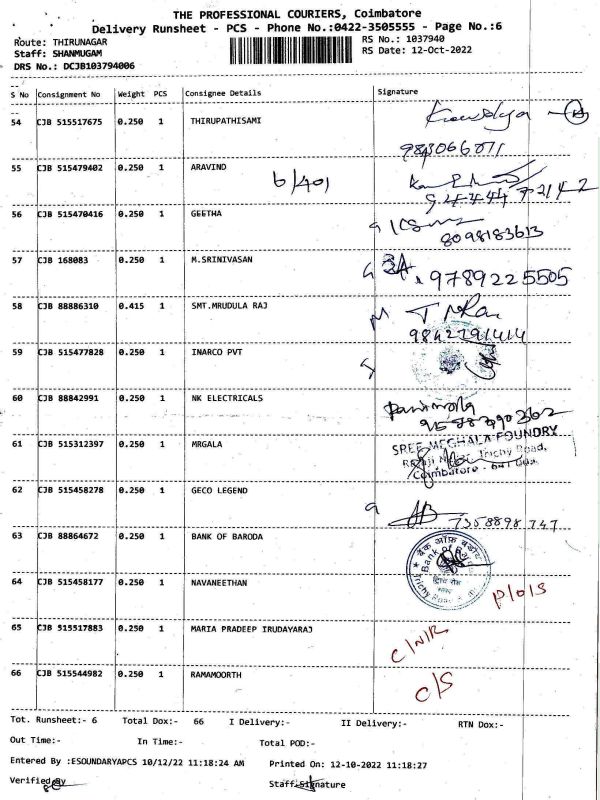 THE PROFESSIONAL COURIERS, Coimbatore
Delivery Runsheet - PCS - Phone No.:0422-3505555 - Page No.:6
Route: THIRUNAGAR
RS No.: 1037940
Staff: SHANMUGAM
RS Date: 12-Oct-2022
DRS No.: DCJB103794006
S No Consignment No Weight PCS Consignee Details Signature
54 CJB 515517675 0.250 1 THIRUPATHISAMI
55 CJB 515479402 0.250 1 ARAVIND
6/401
56 CJB 515470416 0.250 1 GEETHA
8098183613
57 CJB 168083 0.250 1 M.SRINIVASAN
9789225505
58 CJB 88886310 0.415 1 SMT.MRUDULA RAJ
9842791414
59 CJB 515477828 0.250 1 INARCO PVT
60 CJB 88842991 0.250 1 NK ELECTRICALS
61 CJB 515312397 0.250 1 MRGALA
SREE MEGHALA FOUNDRY
Trichy Road,
Coimbatore -
62 CJB 515458278 0.250 1 GECO LEGEND
7358898747
63 CJB 88864672 0.250 1 BANK OF BARODA
बैंक ऑफ़ बड़ौदा
Bank of
64 CJB 515458177 0.250 1 NAVANEETHAN
Trichy Road
P/O/S
65 CJB 515517883 0.250 1 MARIA PRADEEP IRUDAYARAJ
C/N/R
66 CJB 515544982 0.250 1 RAMAMOORTH
C/S
Tot. Runsheet:- 6 Total Dox:- 66 I Delivery:- II Delivery:- RTN Dox:-
Out Time:- In Time:- Total POD:-
Entered By :ESOUNDARYAPCS 10/12/22 11:18:24 AM Printed On: 12-10-2022 11:18:27
Verified By Staff Signature